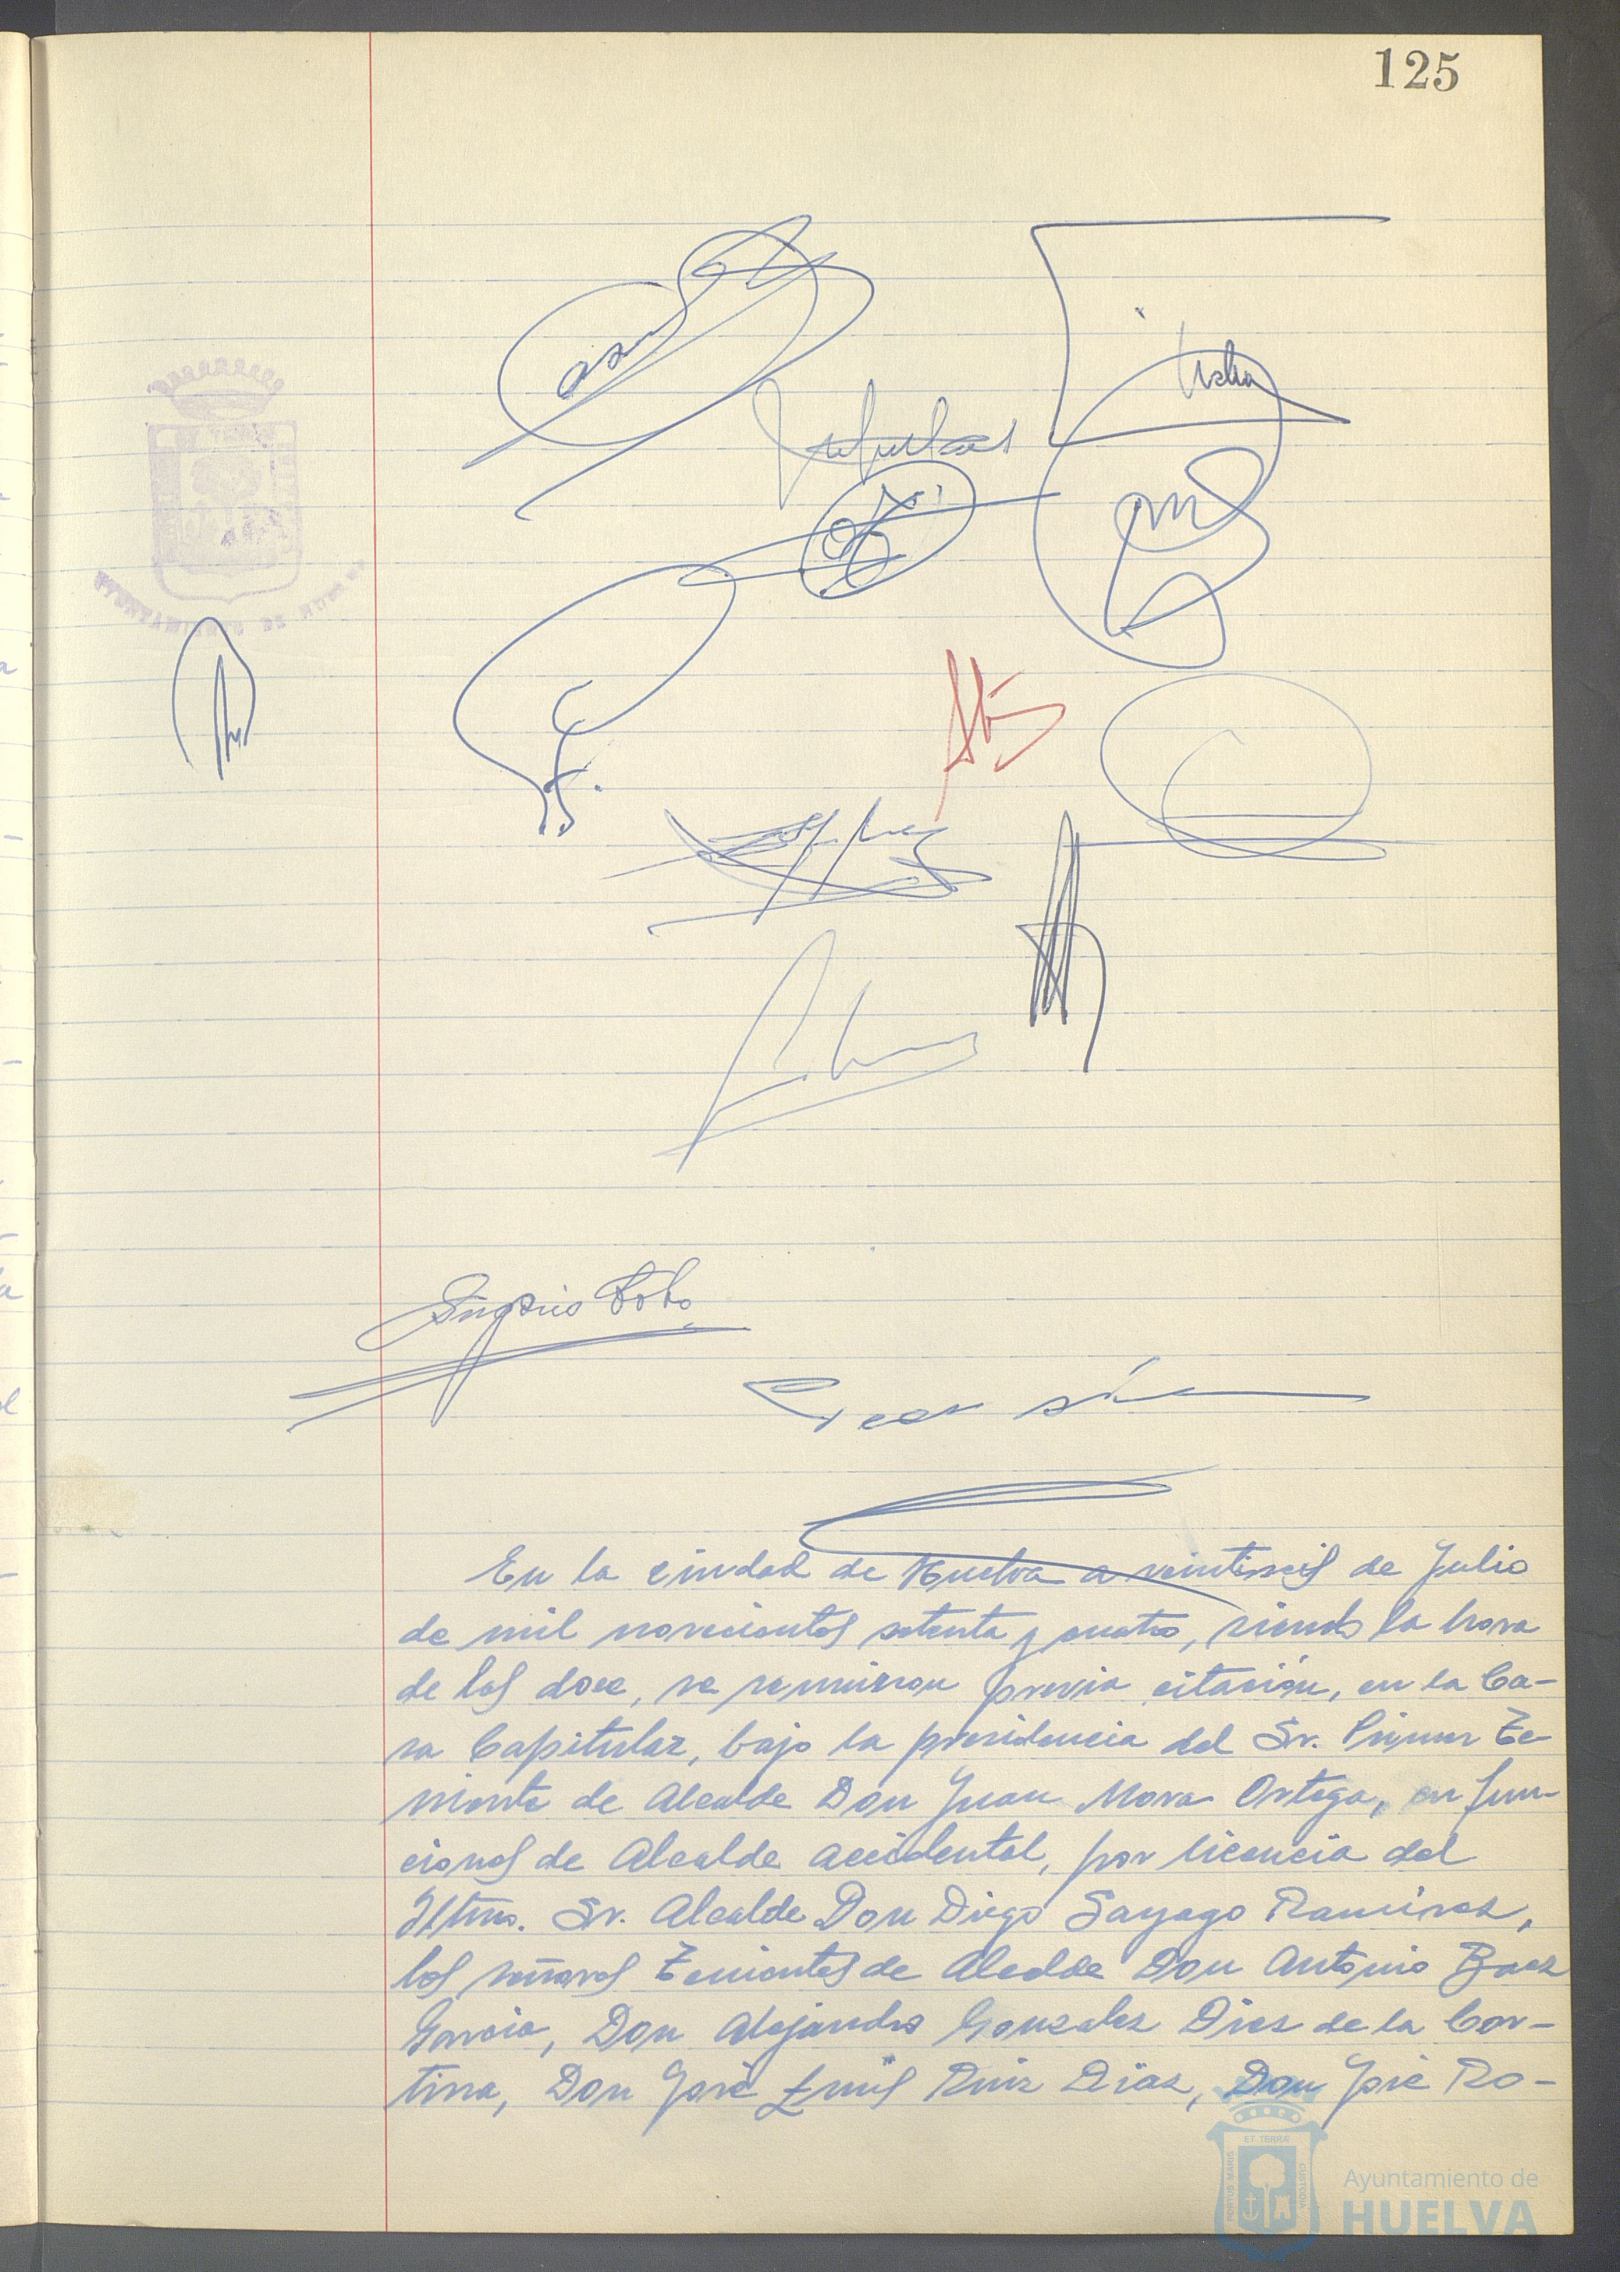 125
AYUNTAMIENTO DE HUELVA
Eugenio Lobo
En la ciudad de Huelva a veintiseis de Julio
de mil novecientos setenta y cuatro, siendo la hora
de las doce, se reunieron previa citación, en la Ca-
sa Capitular, bajo la presidencia del Sr. Primer Te-
niente de Alcalde Don Juan Mora Ortega, en fun-
ciones de Alcalde accidental, por licencia del
Iltmo. Sr. Alcalde Don Diego Sayago Ramírez,
los señores Tenientes de Alcalde Don Antonio Baez
Garcia, Don Alejandro Gonzalez Dies de la Cor-
tina, Don José Luis Ruiz Díaz, Don José Ro-
PORTUS MARIS
ET TERRÆ
CUSTODIA
Ayuntamiento de
HUELVA